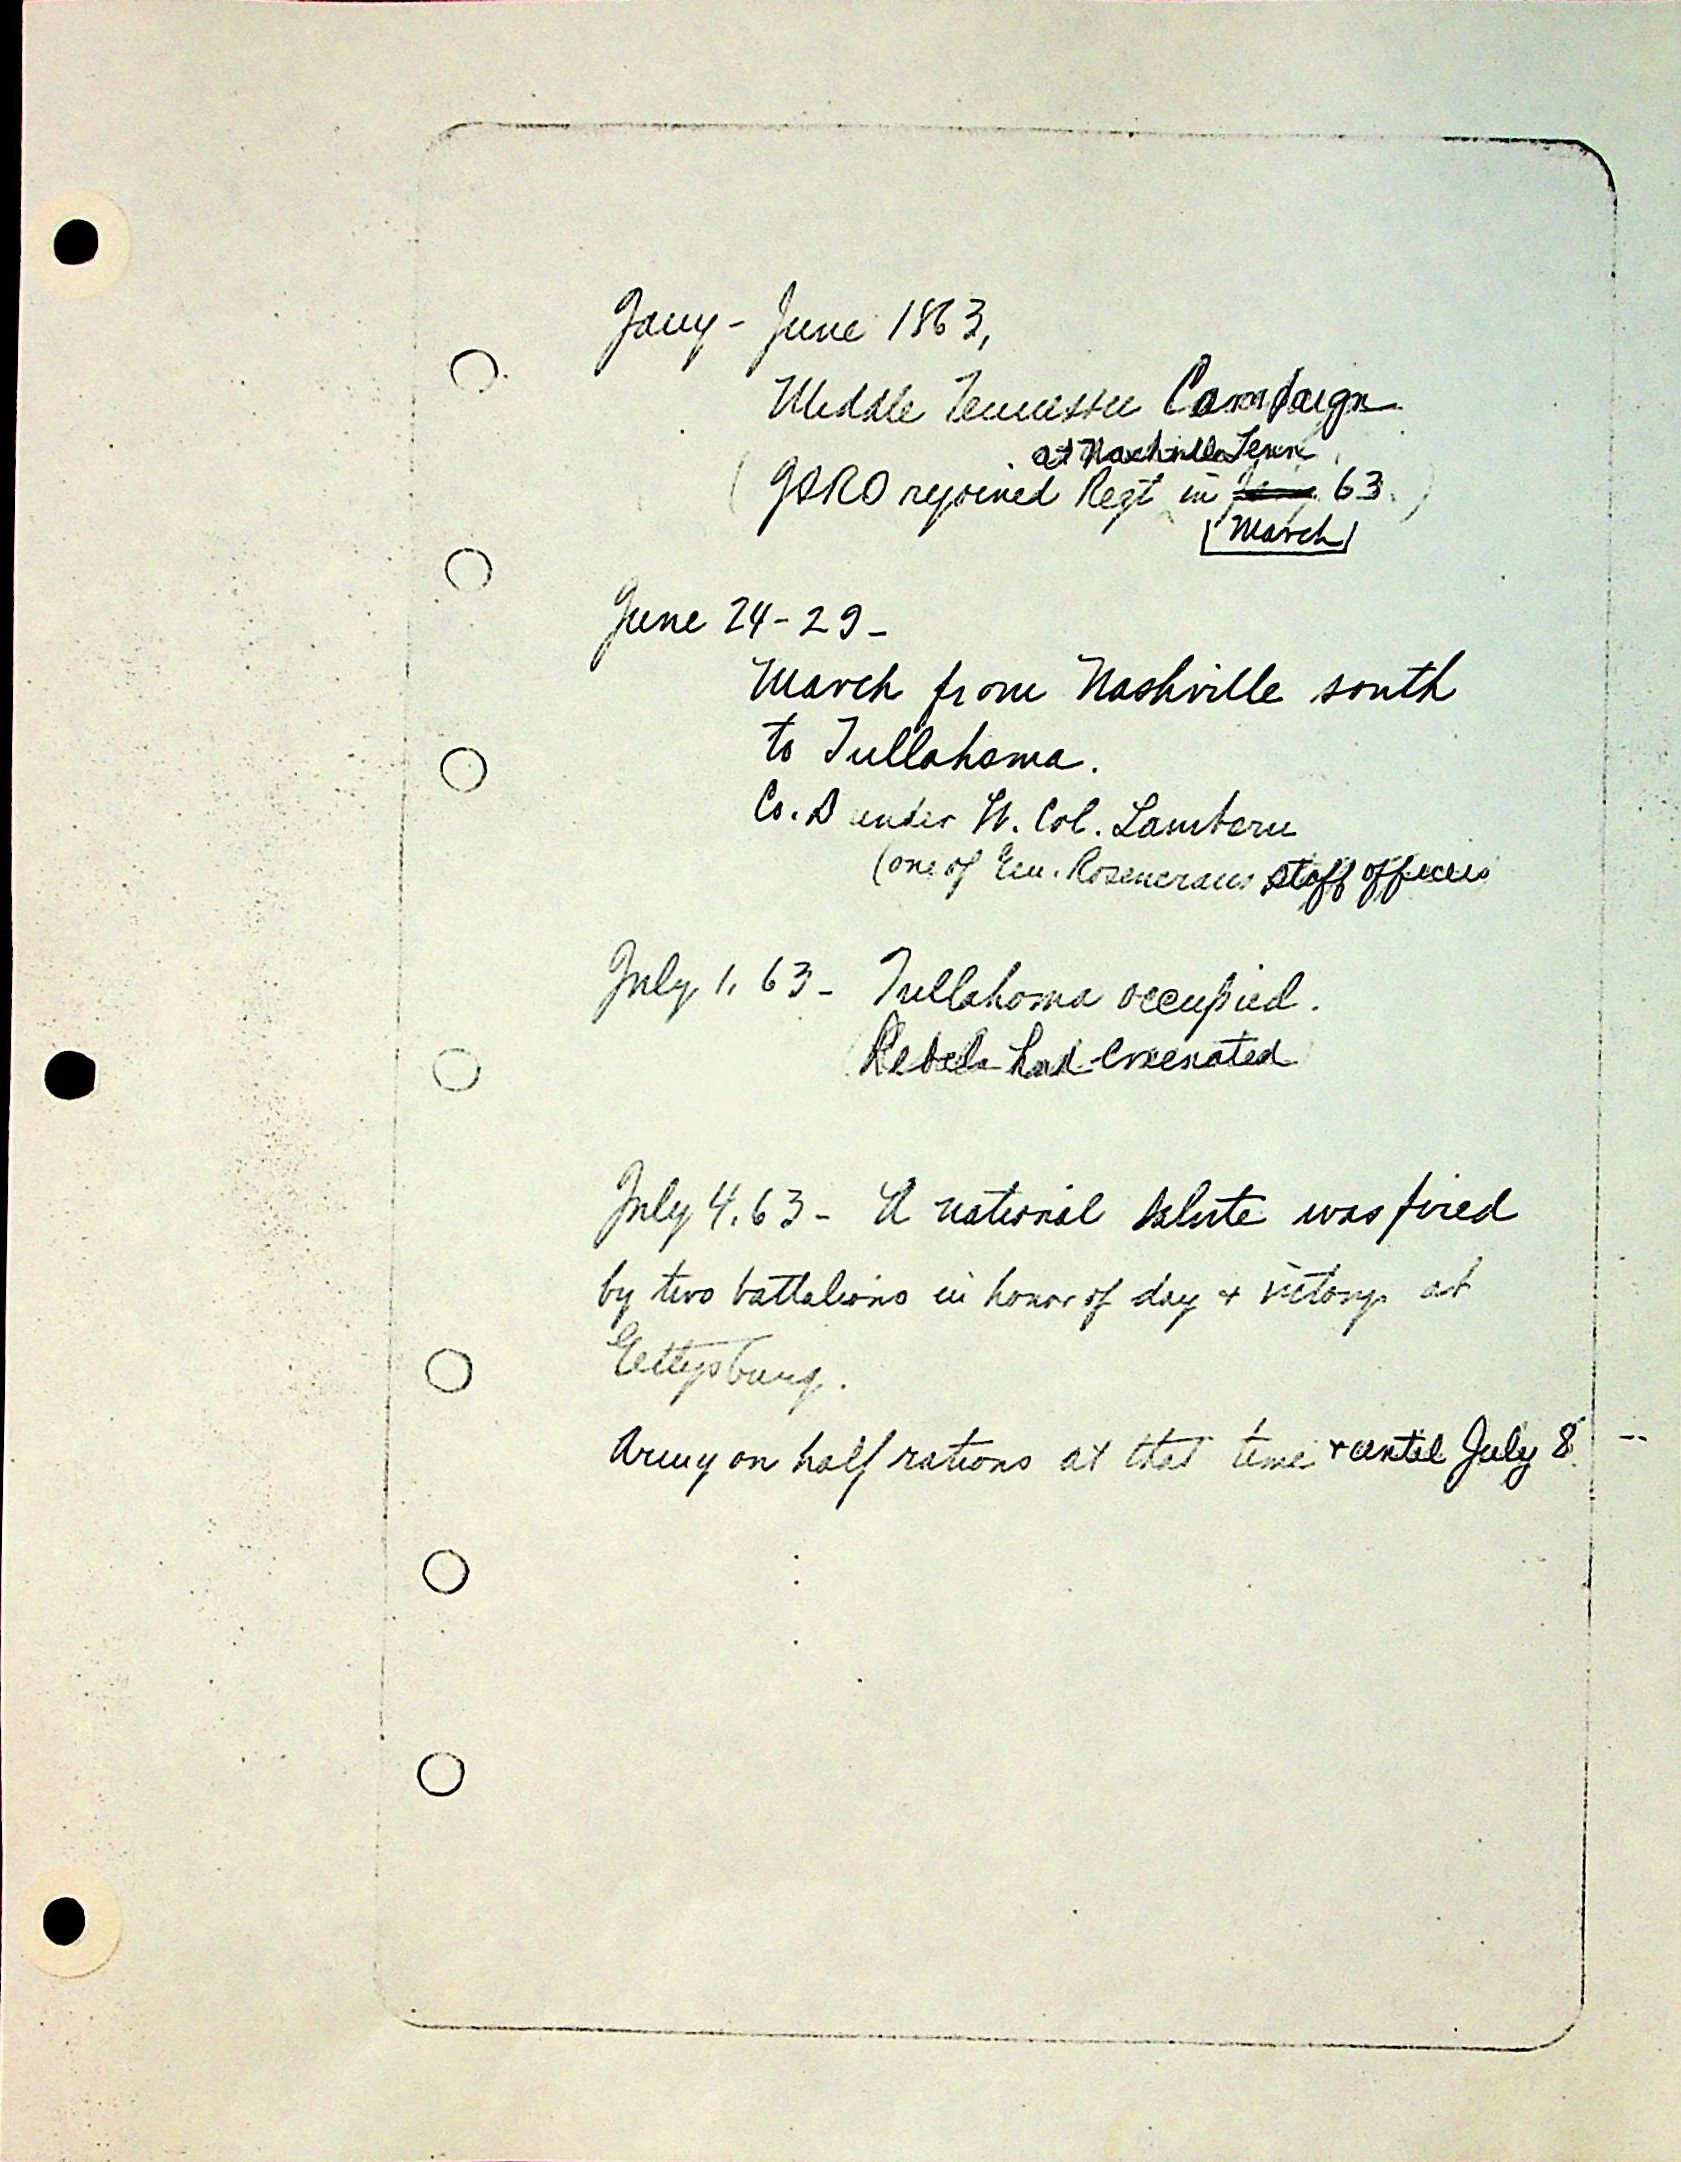 Jany - June 1863,
Middle Tennessee Campaign
at Nashville Tenn
(JARO rejoined Regt in 63.)
[March]
June 24-29-
March from Nashville south
to Tullahoma.
Co. D under Lt. Col. Lamborn
(one of Gen. Rosencrans staff officers
July 1, 63- Tullahoma occupied.
Rebels had evacuated
July 4, 63- A national salute was fired
by two battalions in honor of day + victory at
Gettysburg.
Army on half rations at that time + until July 8. --